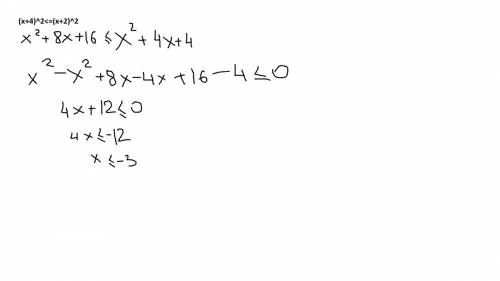 (x+4)^2<=(x+2)^2
x² + 8x + 16 ≤ x² + 4x + 4
x² - x² + 8x - 4x + 16 - 4 ≤ 0
4x + 12 ≤ 0
4x ≤ -12
x ≤ -3